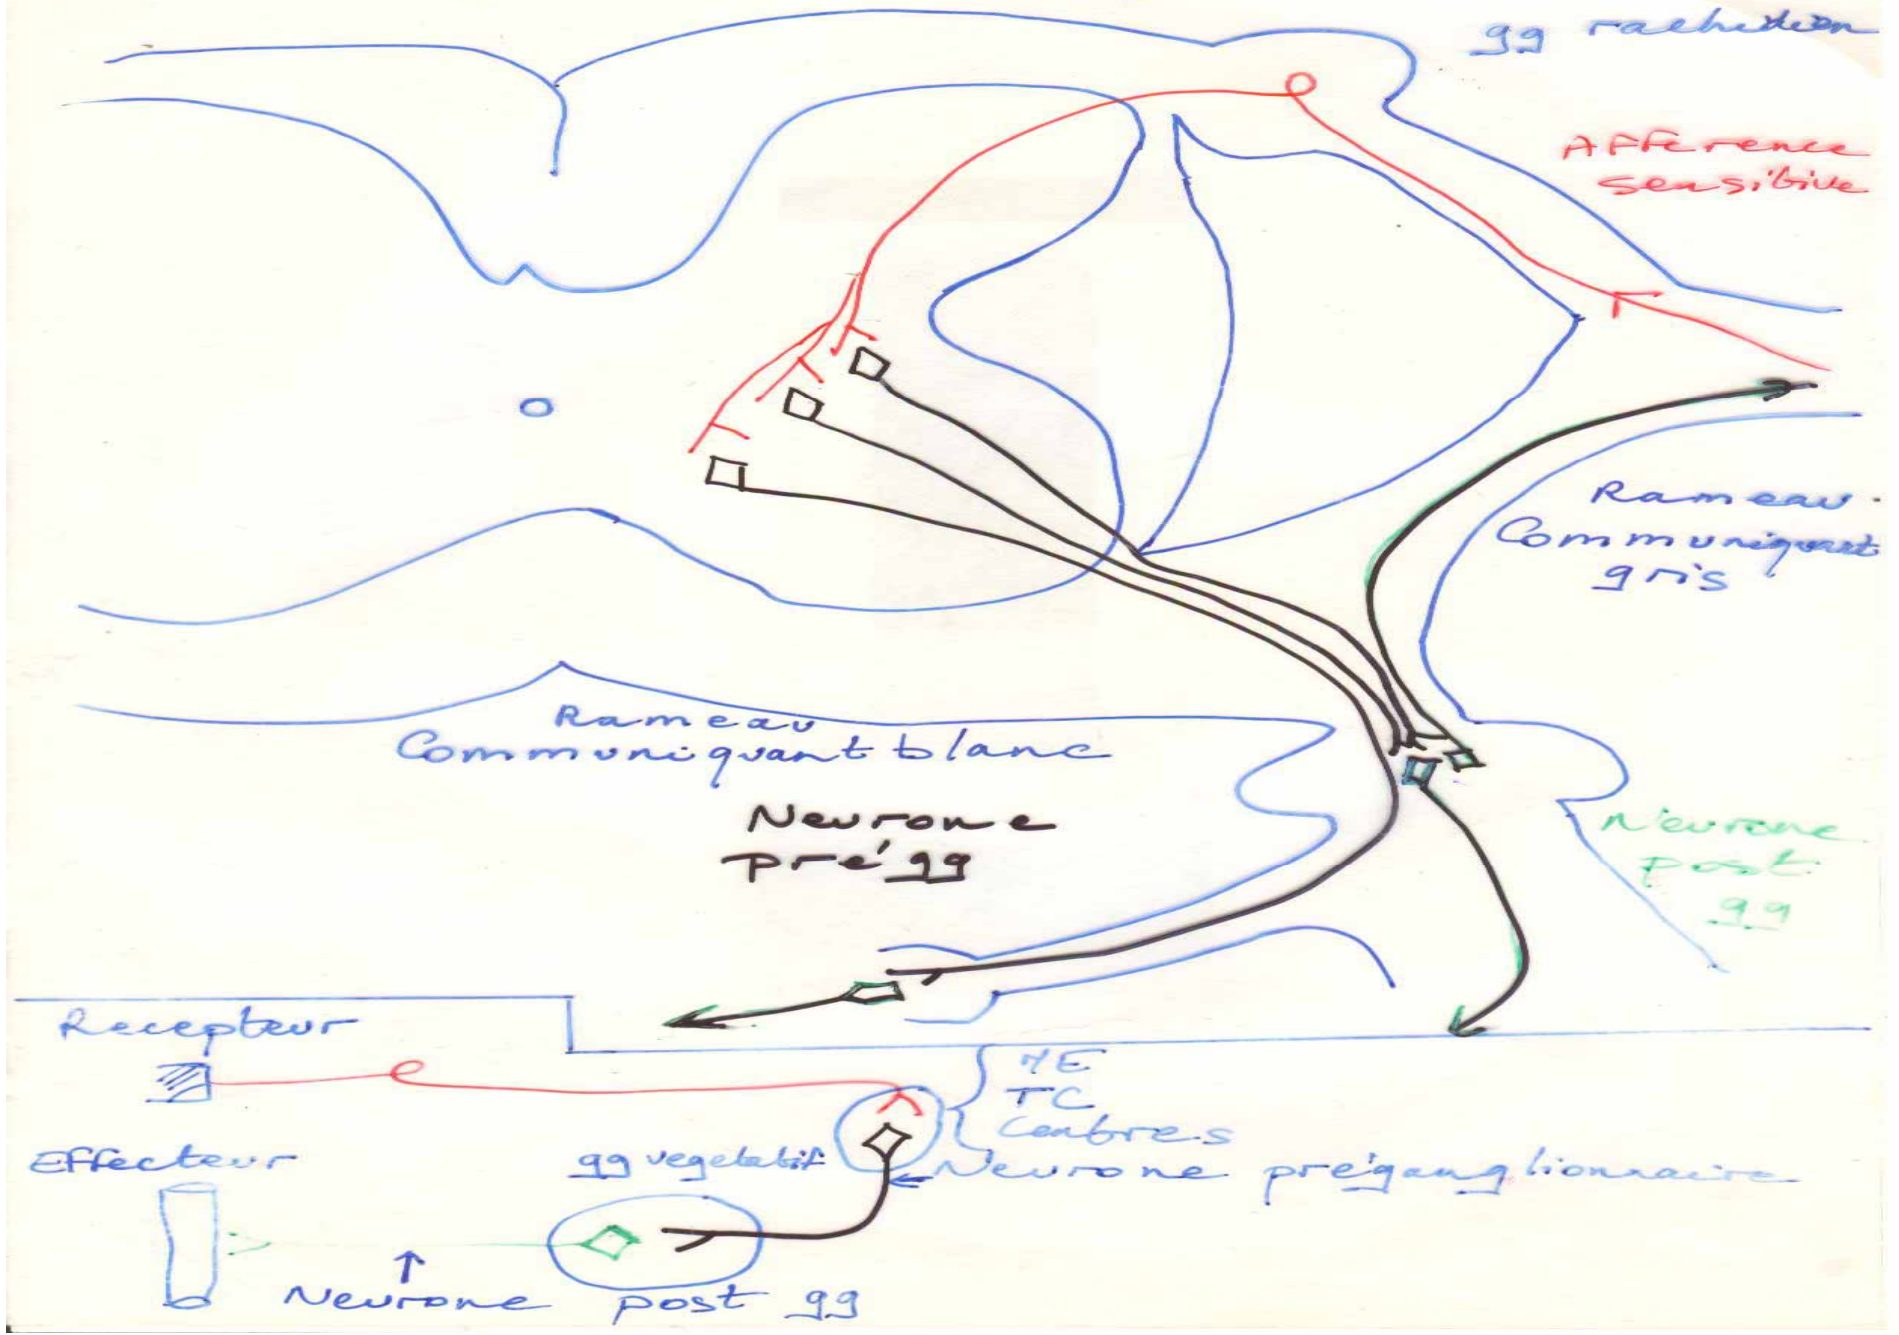 gg rachidien
Afference
sensitive
Rameau
Communiquant
gris
Rameau
Communiquant blanc
Neurone
pré gg
Neurone
post
gg
Recepteur
ME
TC
Centres
Effecteur
gg vegetatif
Neurone préganglionnaire
Neurone post gg